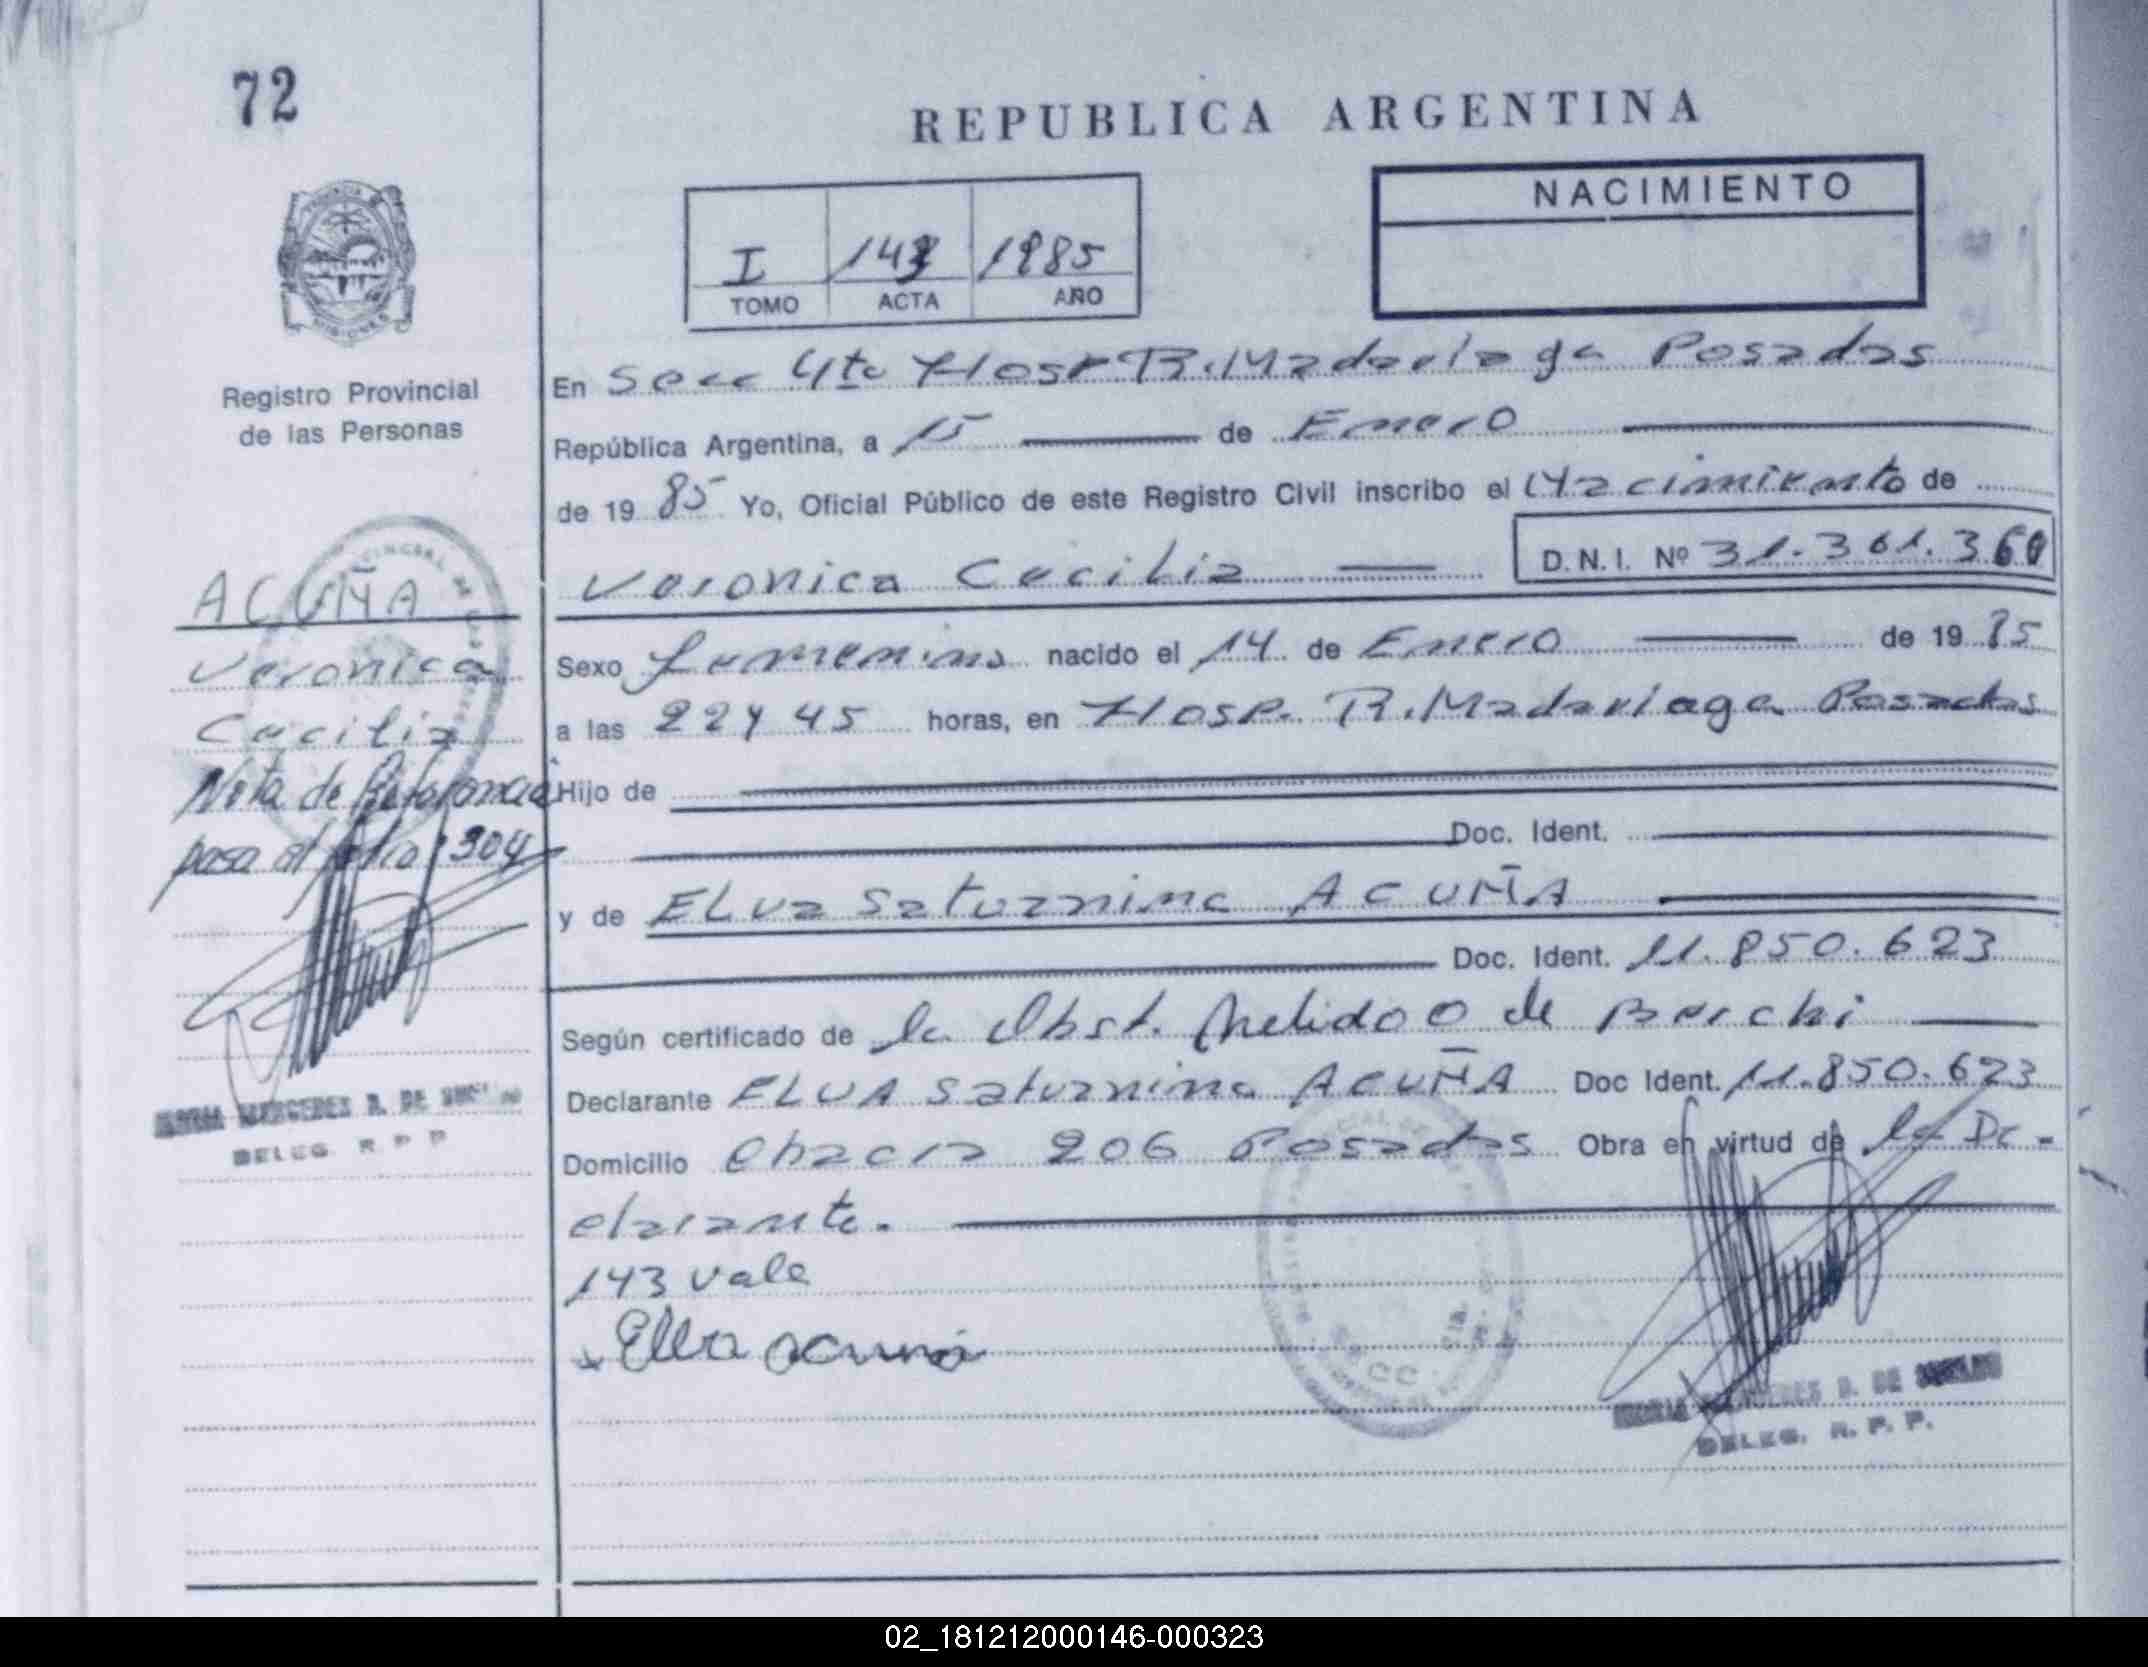 72
REPUBLICA ARGENTINA
NACIMIENTO
I 143 1985
TOMO ACTA AÑO
Registro Provincial
de las Personas
MISIONES
En Secc 4ta Hosp R. Madariaga Posadas
República Argentina, a 15 de Enero
de 19 85 Yo, Oficial Público de este Registro Civil inscribo el Nacimiento de
Veronica Cecilia D.N.I. Nº 31.361.360
Sexo femenino nacido el 14 de Enero de 19 85
a las 22 y 45 horas, en Hosp. R. Madariaga Posadas
Hijo de
Doc. Ident.
y de ELva Saturnina ACUÑA
Doc. Ident. 11.850.623
Según certificado de la Obst. de
Declarante ELVA Saturnina ACUÑA Doc Ident. 11.850.623
Domicilio Chacra 206 Posadas Obra en virtud de la De-
clarante.
143 vale
Elba acuna
ACUÑA
Veronica
Cecilia
Nota de Referencia
pasa al folio 304
MERCEDES R. DE
DELEG. R. P. P.
SECC. 4ta.
MERCEDES R. DE
DELEG. R. P. P.
02_181212000146-000323